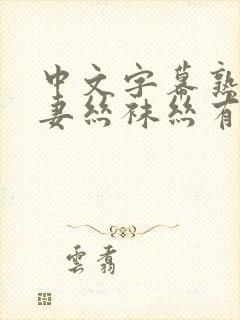 中文字幕熟
妻丝袜丝有
云翥